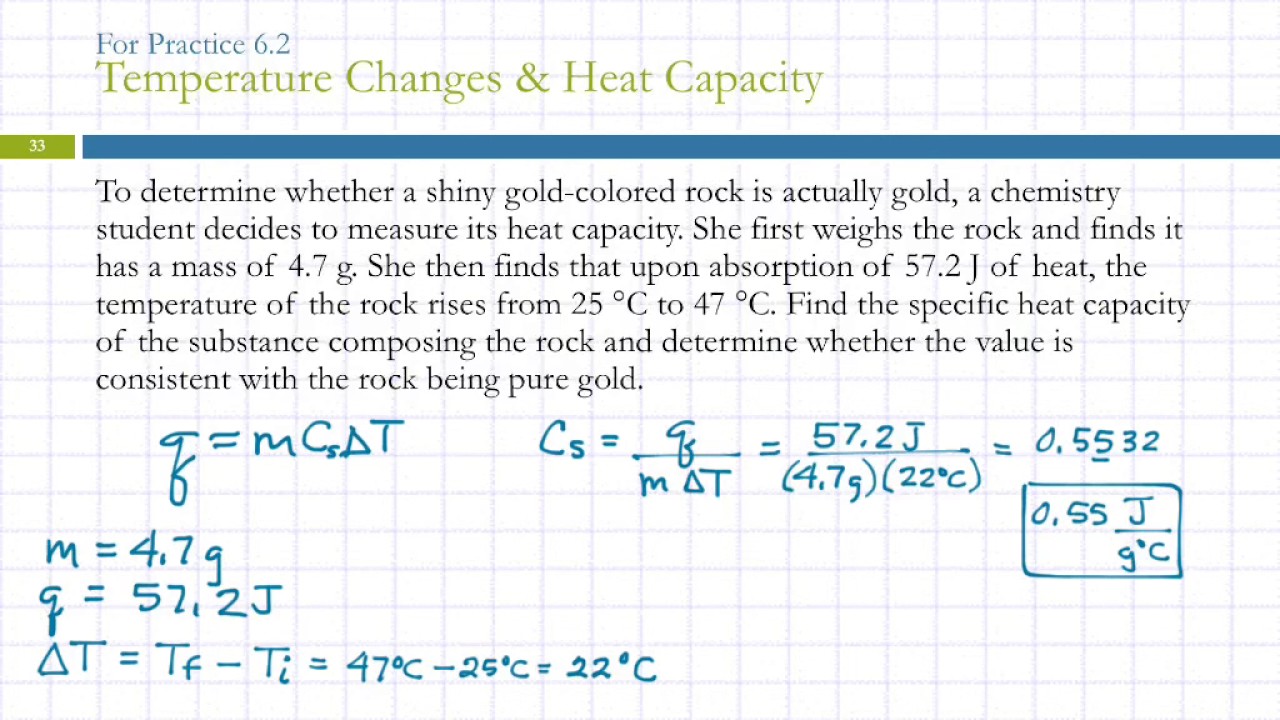 For Practice 6.2
Temperature Changes & Heat Capacity
33
To determine whether a shiny gold-colored rock is actually gold, a chemistry
student decides to measure its heat capacity. She first weighs the rock and finds it
has a mass of 4.7 g. She then finds that upon absorption of 57.2 J of heat, the
temperature of the rock rises from 25 °C to 47 °C. Find the specific heat capacity
of the substance composing the rock and determine whether the value is
consistent with the rock being pure gold.
q = mCsΔT
Cs = q / mΔT = 57.2 J / (4.7g)(22°C) = 0.5532
0.55 J / g°C
m = 4.7 g
q = 57.2 J
ΔT = Tf – Ti = 47°C – 25°C = 22°C